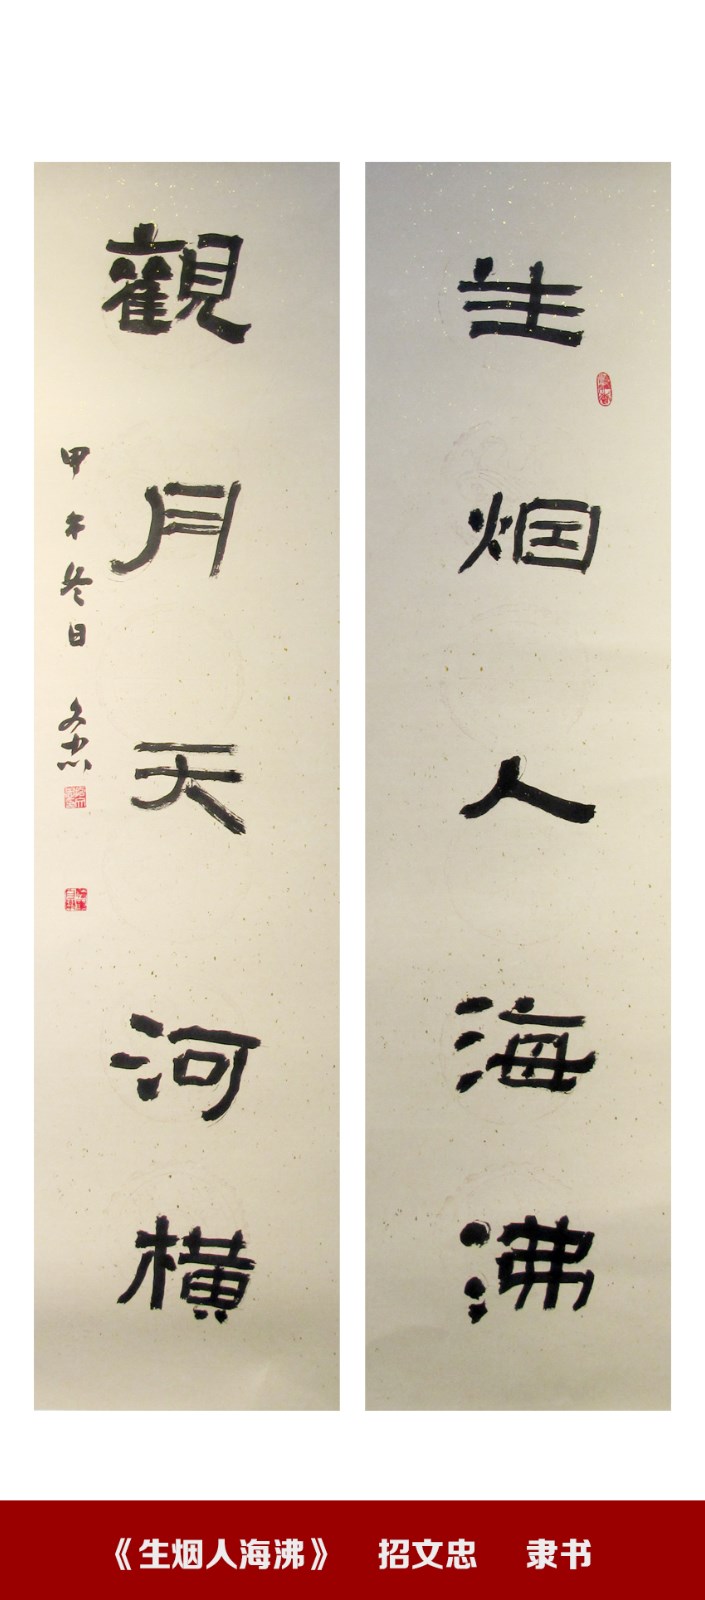 生烟人海沸
觀月天河横
甲午冬日 文忠
《生烟人海沸》 招文忠 隶书